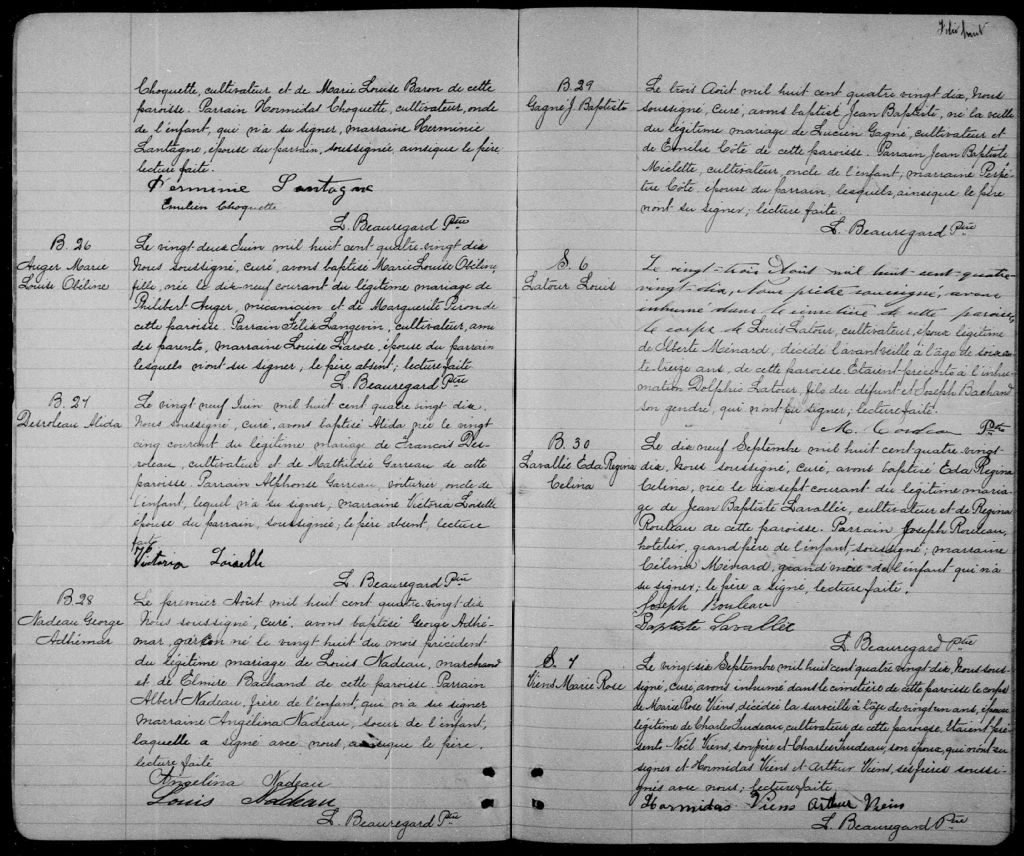 Choquette, cultivateur et de Marie Louise Baron de cette
paroisse. Parrain Hormidas Choquette, cultivateur, oncle
de l'enfant, qui n'a su signer, marraine Herminie
Lantagne, épouse du parrain, soussignée, ainsique le père,
lecture faite.
Herminie Lantagne
Emilien Choquette
L. Beauregard Ptre
B. 26
Auger Marie
Louise Obéline
Le vingt deux Juin mil huit cent quatre-vingt dix
Nous soussigné, curé, avons baptisé Marie Louise Obéline,
fille, née le dix-neuf courant du légitime mariage de
Philibert Auger, mécanicien et de Marguerite Piron de
cette paroisse. Parrain Félix Langevin, cultivateur, ami
des parents, marraine Louise Larose, épouse du parrain
lesquels n'ont su signer; le père absent; lecture faite
L. Beauregard Ptre
B. 27
Desroleau Alida
Le vingt neuf Juin mil huit cent quatre vingt dix.
Nous soussigné, curé, avons baptisé Alida née le vingt
cinq courant du légitime mariage de François Des-
roleau, cultivateur et de Mathildie Garreau de cette
paroisse. Parrain Alphonse Garreau, voiturier, oncle de
l'enfant, lequel n'a su signer; marraine Victoria Loiselle
épouse du parrain, soussignée; le père absent, lecture
faite
Victoria Loiselle
L. Beauregard Ptre
B. 28
Nadeau George
Adhémar
Le premier Août mil huit cent quatre-vingt dix
Nous soussigné, curé, avons baptisé George Adhé-
mar, garçon né le vingt huit du mois précédent
du légitime mariage de Louis Nadeau, marchand
et de Elmire Bachand de cette paroisse Parrain
Albert Nadeau, frère de l'enfant, qui n'a su signer
marraine Angélina Nadeau, soeur de l'enfant,
laquelle a signé avec nous, ainsique le père,
lecture faite
Angelina Nadeau
Louis Nadeau
L. Beauregard Ptre
B. 29
Gagné J. Baptiste
Le trois Août mil huit cent quatre vingt dix, Nous
soussigné, curé, avons baptisé Jean Baptiste, né la veille
du légitime mariage de Lucien Gagné, cultivateur et
de Emilie Côté de cette paroisse. Parrain Jean Baptiste
Miclette, cultivateur, oncle de l'enfant, marraine Perpé-
tue Côté, épouse du parrain, lesquels, ainsique le père
n'ont su signer; lecture faite.
L. Beauregard Ptre
S. 6
Latour Louis
Le vingt-trois Août mil huit-cent-quatre-
vingt-dix, Nous prêtre soussigné, avons
inhumé dans le cimetière de cette paroisse,
le corps de Louis Latour, cultivateur, époux légitime
de Alberte Ménard, décédé l'avant veille à l'âge de soixan-
te treize ans, de cette paroisse. Etaient présents à l'inhu-
mation Dolphis Latour, fils du défunt et Joseph Bachand
son gendre, qui n'ont pu signer; lecture faite.
Ptre
B. 30
Lavallée Eda Regina
Celina
Le dix neuf Septembre mil huit cent quatre vingt
dix, Nous soussigné, curé, avons baptisé Eda Regina
Celina, née le dix sept courant du légitime maria-
ge de Jean Baptiste Lavallée, cultivateur et de Regina
Rouleau de cette paroisse. Parrain Joseph Rouleau,
hotelier, grand père de l'enfant, soussigné; marraine
Célina Ménard, grand mère de l'enfant qui n'a
su signer; le père a signé, lecture faite.
Joseph Rouleau
Baptiste Lavallée
L. Beauregard Ptre
S. 7
Viens Marie Rose
Le vingt six Septembre mil huit cent quatre vingt dix Nous sous-
signé, curé, avons inhumé dans le cimetière de cette paroisse le corps
de Marie Rose Viens, décédée la surveille à l'âge de vingt un ans, épouse
légitime de Charles Trudeau, cultivateur de cette paroisse. Etaient pré-
sents Noël Viens, son père et Charles Trudeau, son époux, qui n'ont su
signer et Hormidas Viens et Arthur Viens, ses frères soussi-
gnés avec nous; lecture faite
Hormidas Viens Arthur Viens
L. Beauregard Ptre